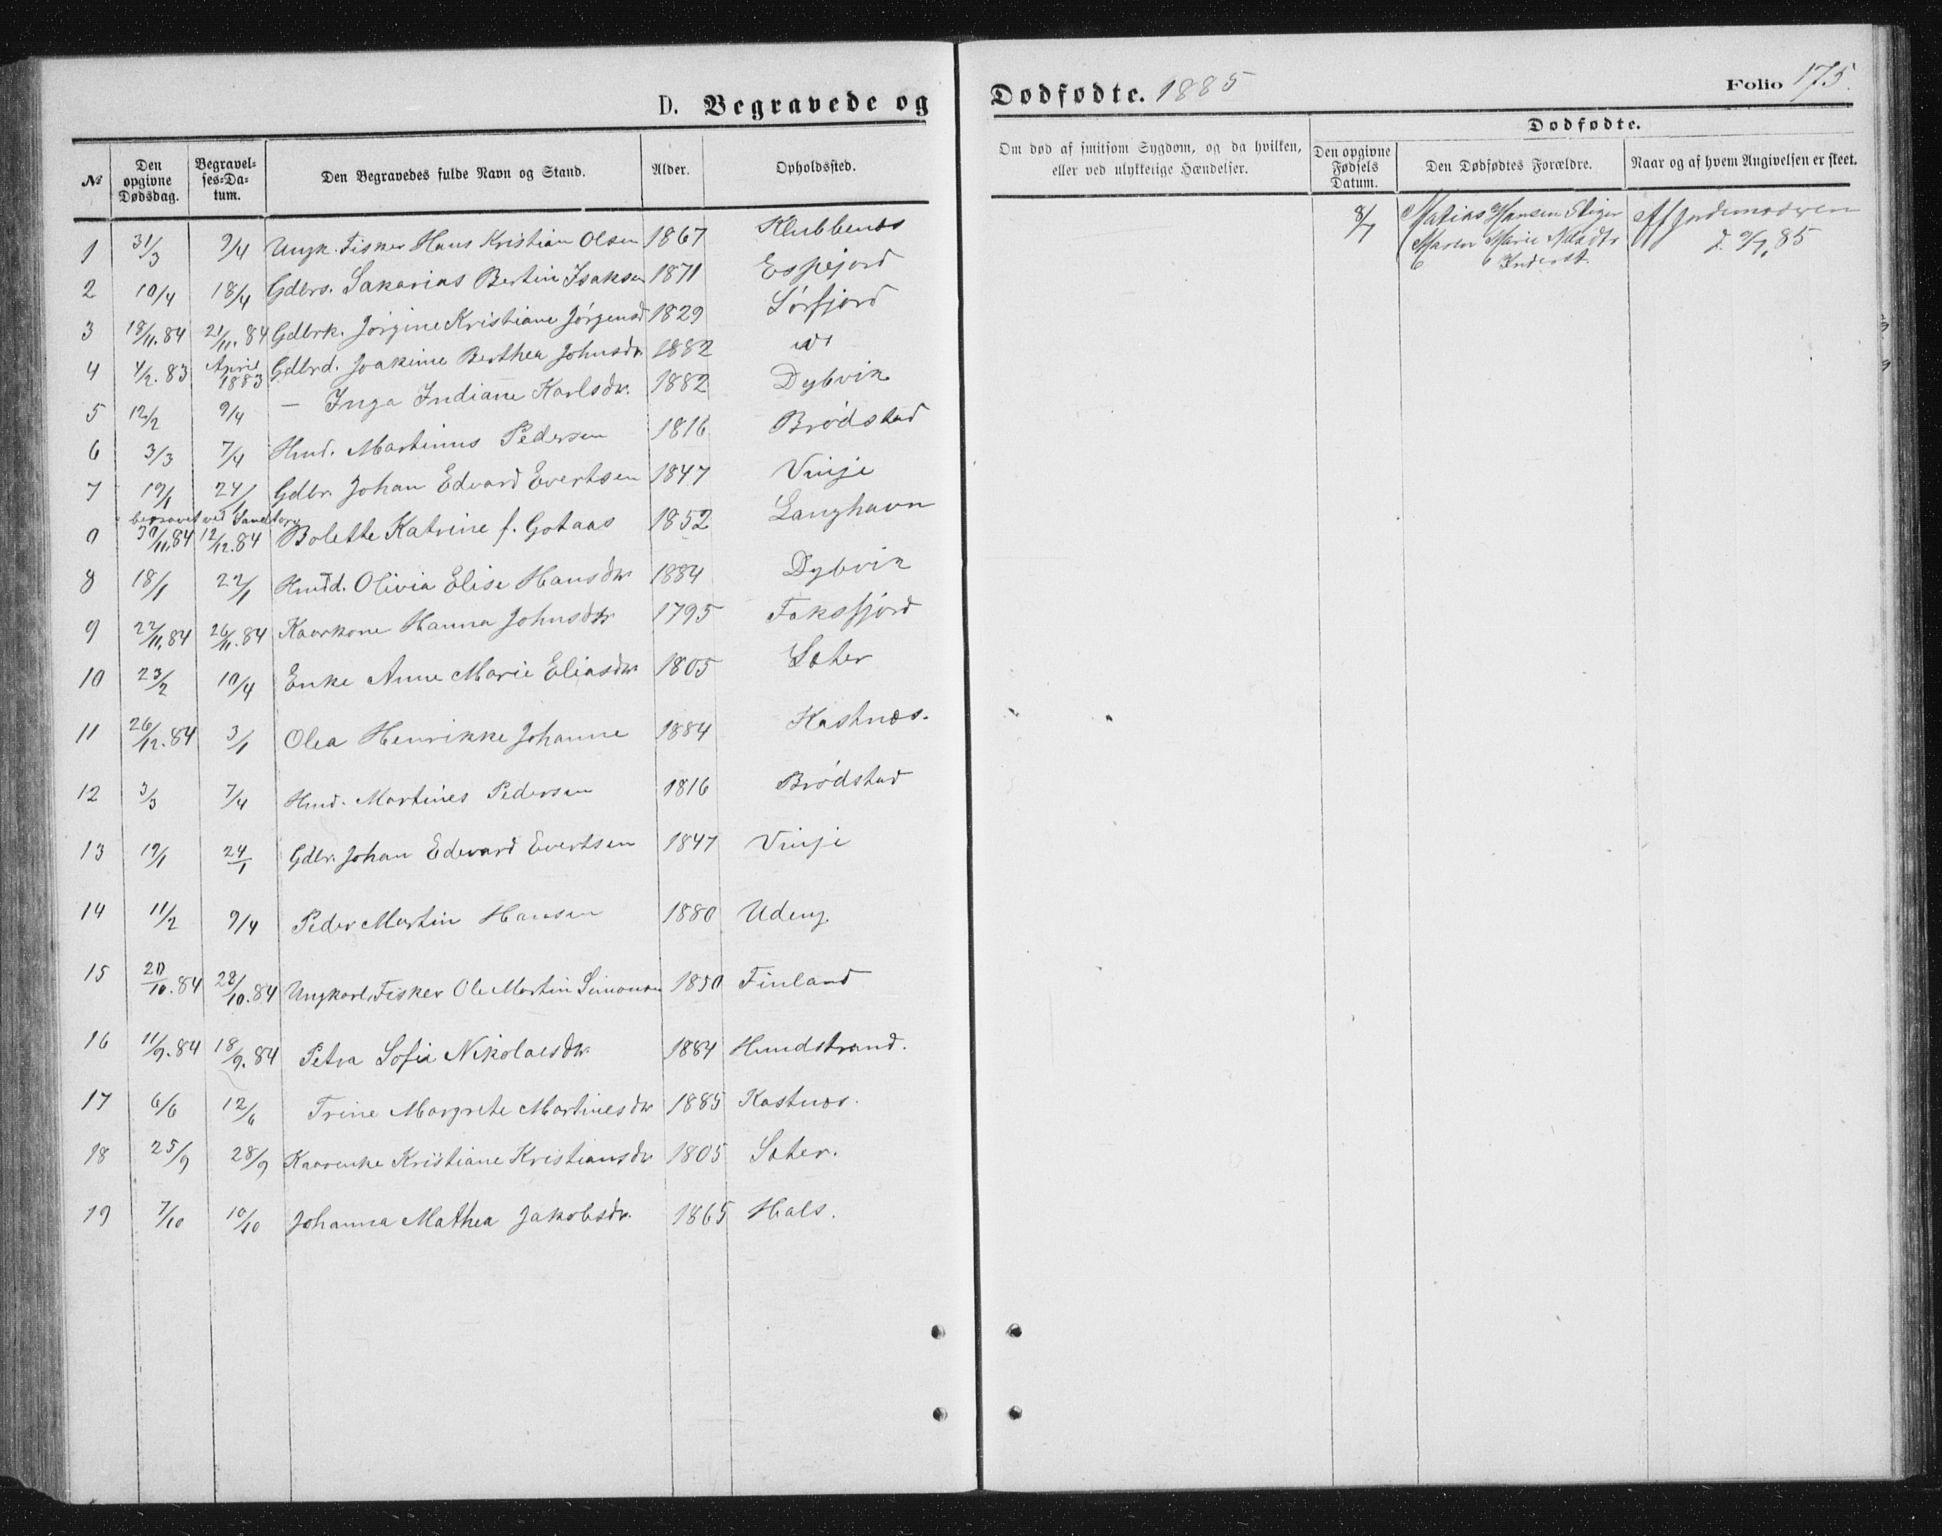 D. Begravede og
Dødfødte. 1885
Folio 175.
№
Den opgivne Dødsdag.
Begravel-ses-Da-tum.
Den Begravedes fulde Navn og Stand.
Alder.
Opholdssted.
Om død af smitsom Sygdom, og da hvilken, eller ved ulykkelige Hændelser.
Dødfødte.
Den opgivne Fødsels Datum.
Den Dødfødtes Forældre.
Naar og af hvem Angivelsen er skeet.
1 31/3 9/4 Ungk. Fisker Hans Kristian Olsen 1867 Klubbenes
2 10/4 18/4 Gdbrs. Sakarias Bertin Isaksen 1871 Espejord
3 18/11.84 21/11.84 Gdbrk. Jørgine Kristiane Jørgensd 1829 Sørfjord
4 4/2.83 April 1883 Gdbrd. Joakime Berthea Johnsdr 1882
5 12/2 9/4 — Inga Indiane Karlsdr. 1882 Dybvik
6 3/3 7/4 Hmd. Martinus Pedersen 1816 Brødstad
7 19/1 24/1 Gdbr. Johan Edvard Evertsen 1847 Vinje
begravet ved Sandtorg
0 30/11.84 12/12.84 Bolette Katrine f. Gotaas 1852 Langhavn
8 18/1 22/1 Hmdd. Olivia Elise Hansdr 1884 Dybvik
9 22/11.84 26/11.84 Kaarkone Hanna Johnsdtr 1795 Faksfjord
10 23/2 10/4 Enke Anne Marie Eliasdr 1805 Sæter
11 26/12.84 3/1 Olea Henrikke Johanne 1884 Kastnæs.
12 3/3 7/4 Hmd. Martines Pedersen 1816 Brødstad
13 19/1 24/1 Gdbr. Johan Edevard Evertsen 1847 Vinje
14 11/2 9/4 Peder Martin Hansen 1880
15 20/10.84 28/10.84 Ungkarl, Fisker Ole Martin Simonsen 1850 Finland
16 11/9.84 18/9.84 Petra Sofie Nikolaesdr. 1884 Hundstrand.
17 6/6 12/6 Trine Margrete Martinesdr 1885 Kastnæs.
18 25/9 28/9 Kaarenke Kristiane Kristiansdr 1805 Sæter.
19 7/10 10/10 Johanna Mathea Jakobsdr. 1865 Hals.
8/7 Matias Hansen
Maren Marie
Af Jordemoderen